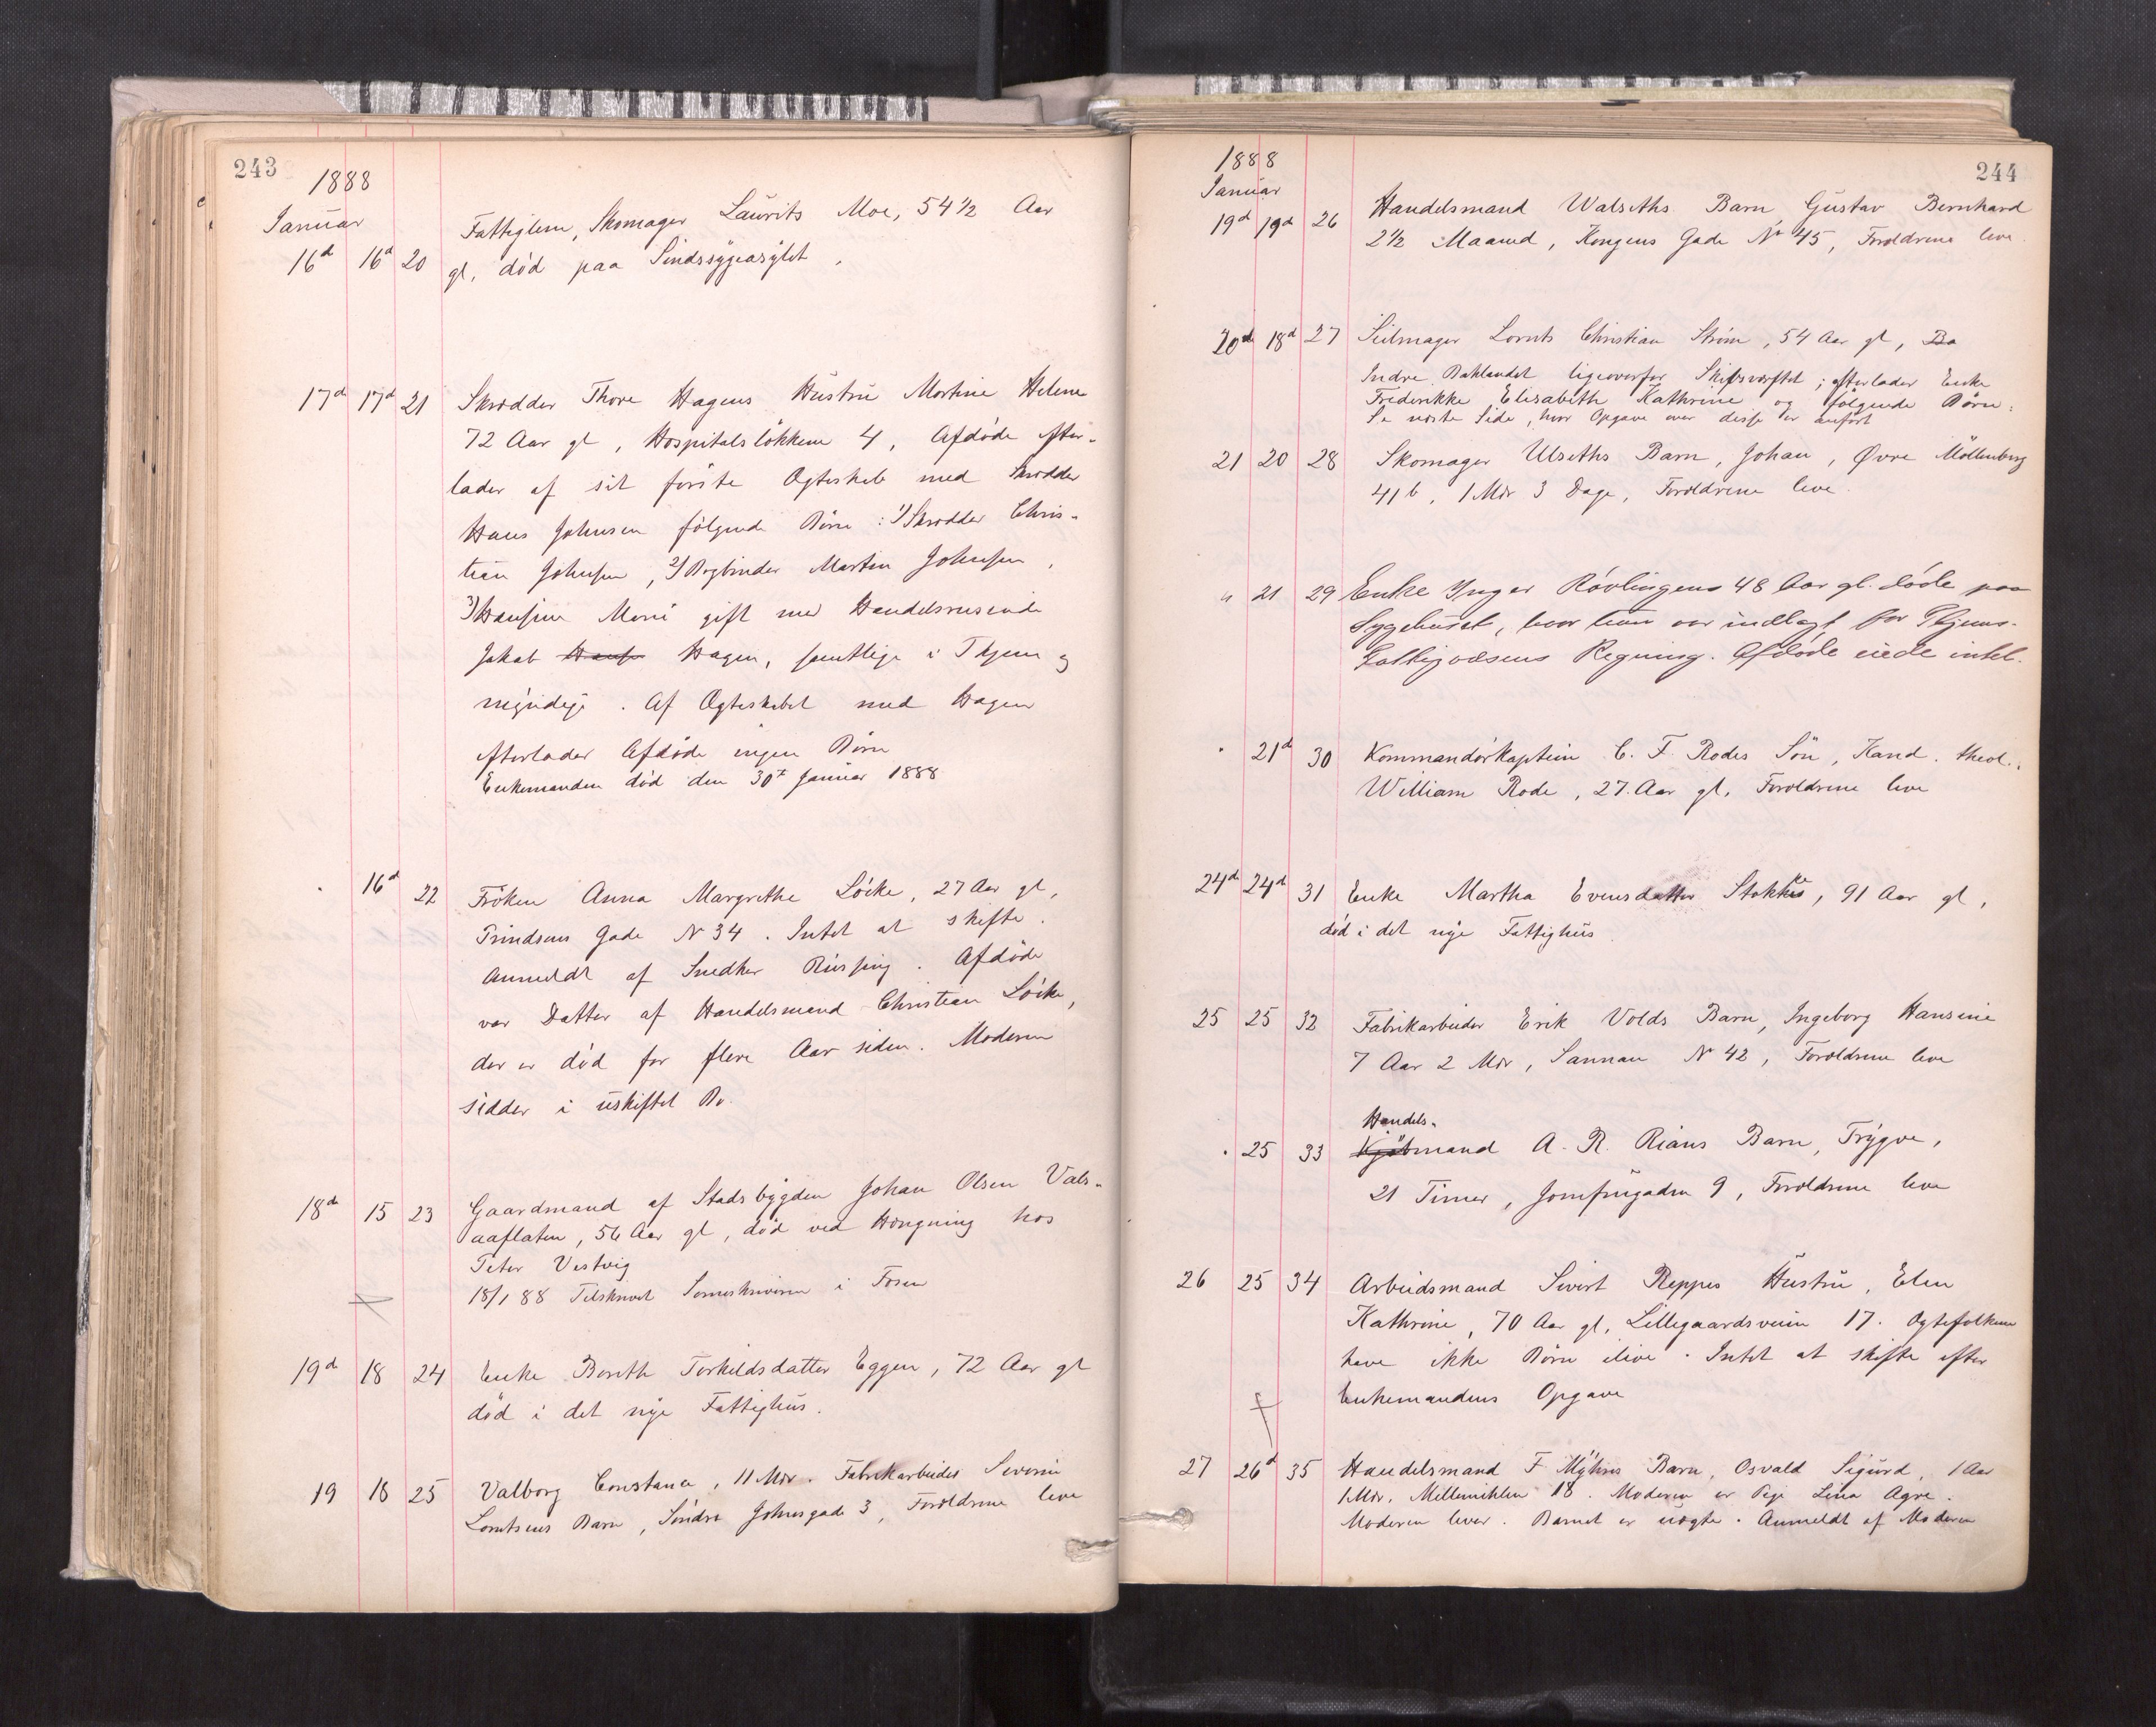 243
1888
Januar
16d 16d 20 Fattiglem, Skomager Laurits Moe, 54 1/2 Aar
gl, død paa Sindssygeasylet.
17d 17d 21 Skrædder Thore Hagens Hustru Martine Helene
72 Aar gl, Hospitalsløkken 4, Afdøde efter-
lader af sit første Ægteskab med Skrædder
Hans Johnsen følgende Børn: 1) Skrædder Chris-
tian Johnsen, 2) Bogbinder Martin Johnsen,
3) Hansine Marie gift med Handelsreisende
Jakob Hans Hagen, samtlige i Thjem og
myndige. Af Ægteskabet med Hagen
efterlader Afdøde ingen Børn
Enkemanden død den 30te Januar 1888
" 16d 22 Frøken Anna Margrethe Løcke, 27 Aar gl,
Prindsens Gade N 34. Intet at skifte.
Anmeldt af Snedker . Afdøde
var Datter af Handelsmand Christian Løcke,
der er død for flere Aar siden. Moderen
sidder i uskiftet Bo.
18d 15 23 Gaardmand af Stadsbygden Johan Olsen Vals-
aaflaten, 56 Aar gl, død ved Hængning hos
Peter Vestvig
18/1 88 Tilskrevet Sorenskriveren i Fosen
19d 18 24 Enke Bereth Torkildsdatter Eggen, 72 Aar gl
død i det nye Fattighus.
19 18 25 Valborg Constance, 11 Mdr. Fabrikarbeider Severin
Lorntsens Barn, Søndre Johnsgade 3, Forældrene leve
244
1888
Januar
19d 19d 26 Handelsmand Walseths Barn, Gustav Bernhard
2 1/2 Maaned, Kongens Gade No 45, Forældrene leve.
20d 18d 27 Seilmager Lornts Christian Strøm, 54 Aar gl, Ba
Indre Baklandet ligeoverfor Skibsværftet; efterlader Enke
Frederikke Elisabeth Kathrine og følgende Børn:
Se næste Side, hvor Opgave over disse er anført
21 20 28 Skomager Ulseths Barn, Johan, Øvre Møllenberg
41 b, 1 Mdr 3 Dage, Forældrene leve.
" 21 29 Enke Inger Røvlingens 48 Aar gl. døde paa
Sygehuset, hvor hun var indlagt for Thjems
Fattigvæsens Regning. Afdøde eiede intet.
" 21d 30 Kommandørkaptein C. F. Rodes Søn, Kand. theol.,
William Rode, 27 Aar gl, Forældrene leve
24d 24d 31 Enke Martha Evensdatter Stokke, 91 Aar gl,
død i det nye Fattighus
25 25 32 Fabrikarbeider Erik Volds Barn, Ingeborg Hansine
7 Aar 2 Mdr, Sannan N 42, Forældrene leve
Handels-
" 25 33 Kjøbmand A. R. Rians Barn, Trygve,
21 Timer, Jomfrugaden 9, Forældrene leve
26 25 34 Arbeidsmand Sivert Reppes Hustru, Elen
Kathrine, 70 Aar gl, Lillegaardsveien 17. Ægtefolkene
have ikke Børn ilive. Intet at skifte efter
Enkemandens Opgave
27 26d 35 Handelsmand F. Myhres Barn, Osvald Sigurd, 1 Aar
1 Mdr, Mellemihlen 18. Moderen er Pige Lina Agre.
Moderen lever. Barnet er uægte. Anmeldt af Moderen